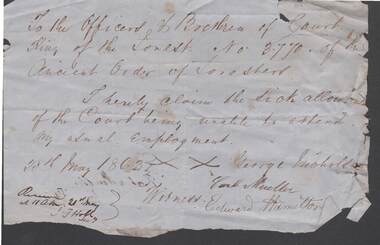 To the Officers & Brethren of Court
King of the Forest No 3770 of the
Ancient Order of Foresters
I hereby claim the Sick allow
of the Court being unable to attend
my usual Employment.
20th May 1862 X X George
Carl Mueller
Witness: Edward Hamilton
Received
at 11 21st May